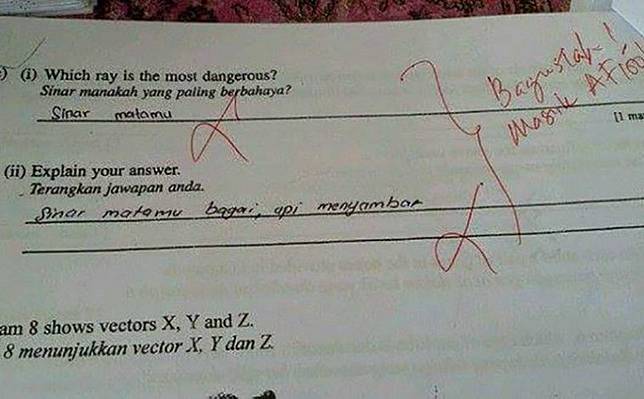 (i) Which ray is the most dangerous?
Sinar manakah yang paling berbahaya?
Sinar matamu
Baguslah!
Masuk AF
[1 ma
(ii) Explain your answer.
Terangkan jawapan anda.
Sinar matamu bagai, api menyambar
am 8 shows vectors X, Y and Z.
8 menunjukkan vector X, Y dan Z.